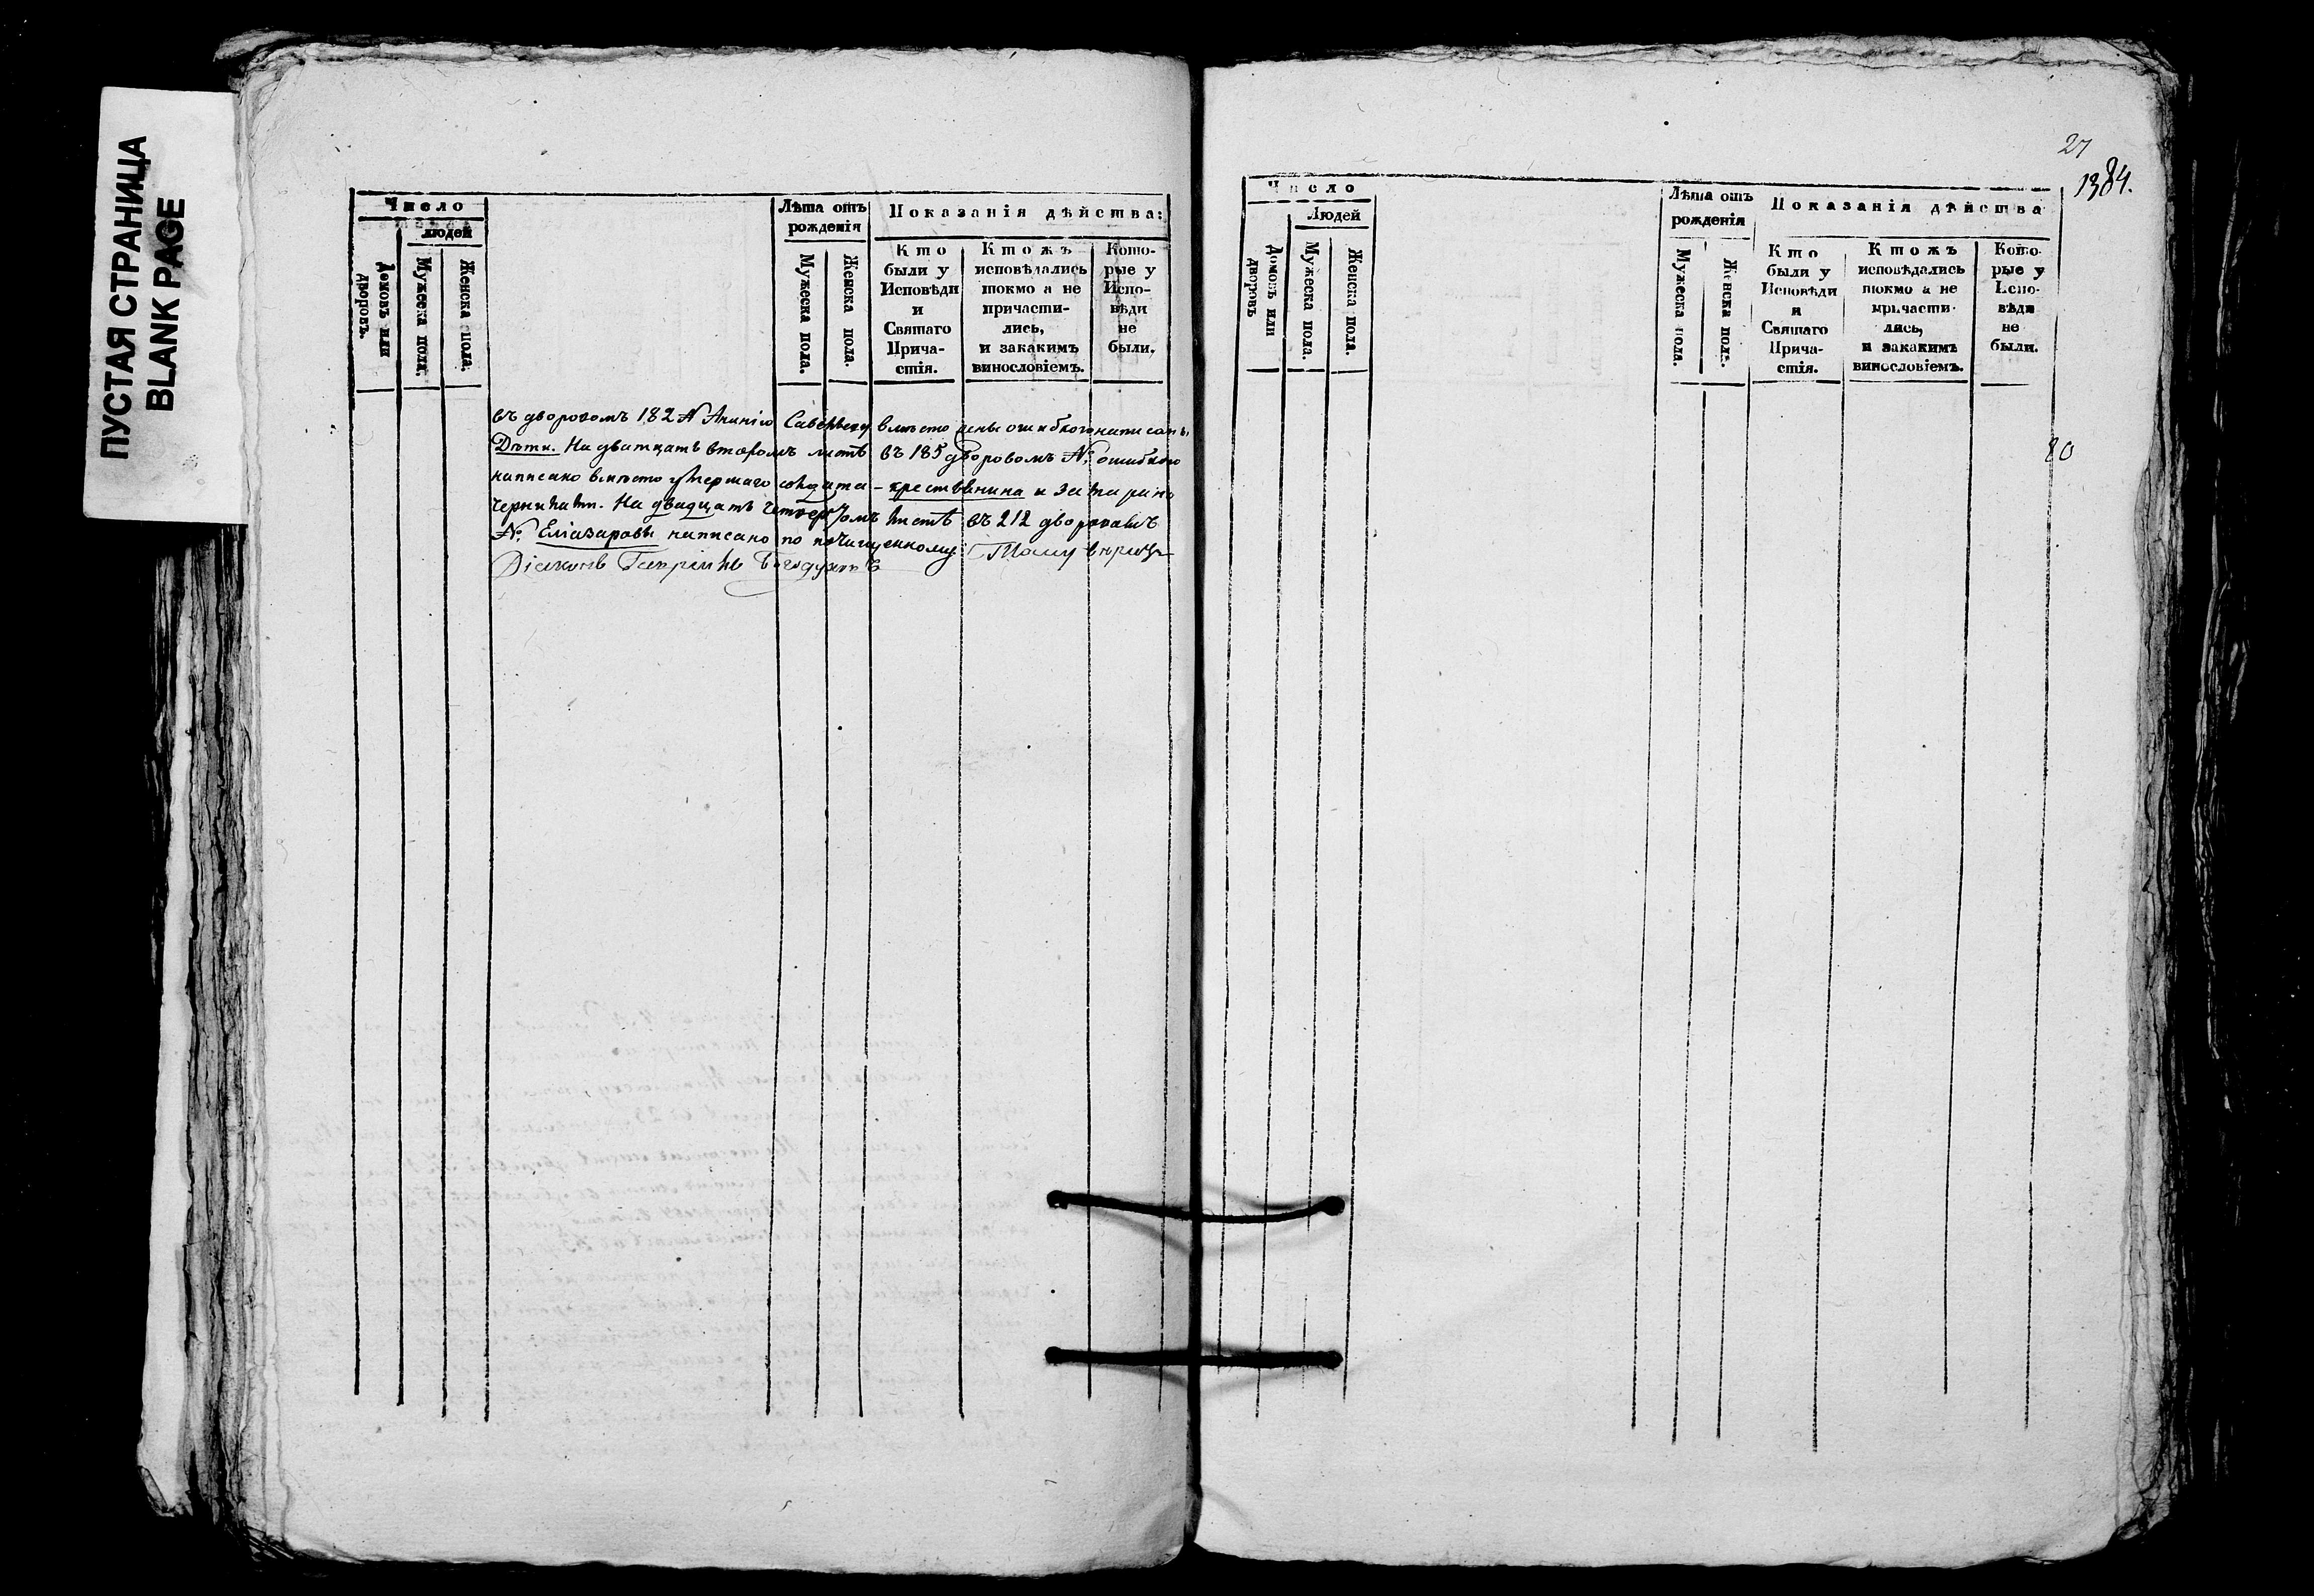 ПУСТАЯ СТРАНИЦА
BLANK PAGE
Число
людей
Домовъ или дворовъ.
Мужеска пола.
Женска пола.
Лѣта отъ рожденія
Мужеска пола.
Женска пола.
Показанія дѣйства:
Кто были у Исповѣди и Святаго Прича-стія.
Ктожъ исповѣдались токмо а не причасти-лись, и закакимъ винословіемъ.
Кото-рые у Испо-вѣди не были.
въ дворовомъ 182 № вмѣсто ошибкою написаны
Дѣти. На дватцать второмъ листѣ въ 185 дворовомъ №: ошибкою
написано вмѣсто умершаго солдата – крестьянина и
На двадцать четвертомъ листѣ въ 212 дворовомъ
№. Еліазаровы написано по почищенному
Діаконъ Гавріилъ
27
1384.
Число
Людей
Домовъ или дворовъ
Мужеска пола.
Женска пола.
Лѣта отъ рожденія
Мужеска пола.
Женска пола.
Показанія дѣйства
Кто были у Исповѣди и Святаго Прича-стія.
Ктожъ исповѣдались токмо а не причасти-лись, и закакимъ винословіемъ.
Кото-рые у Испо-вѣди не были.
80